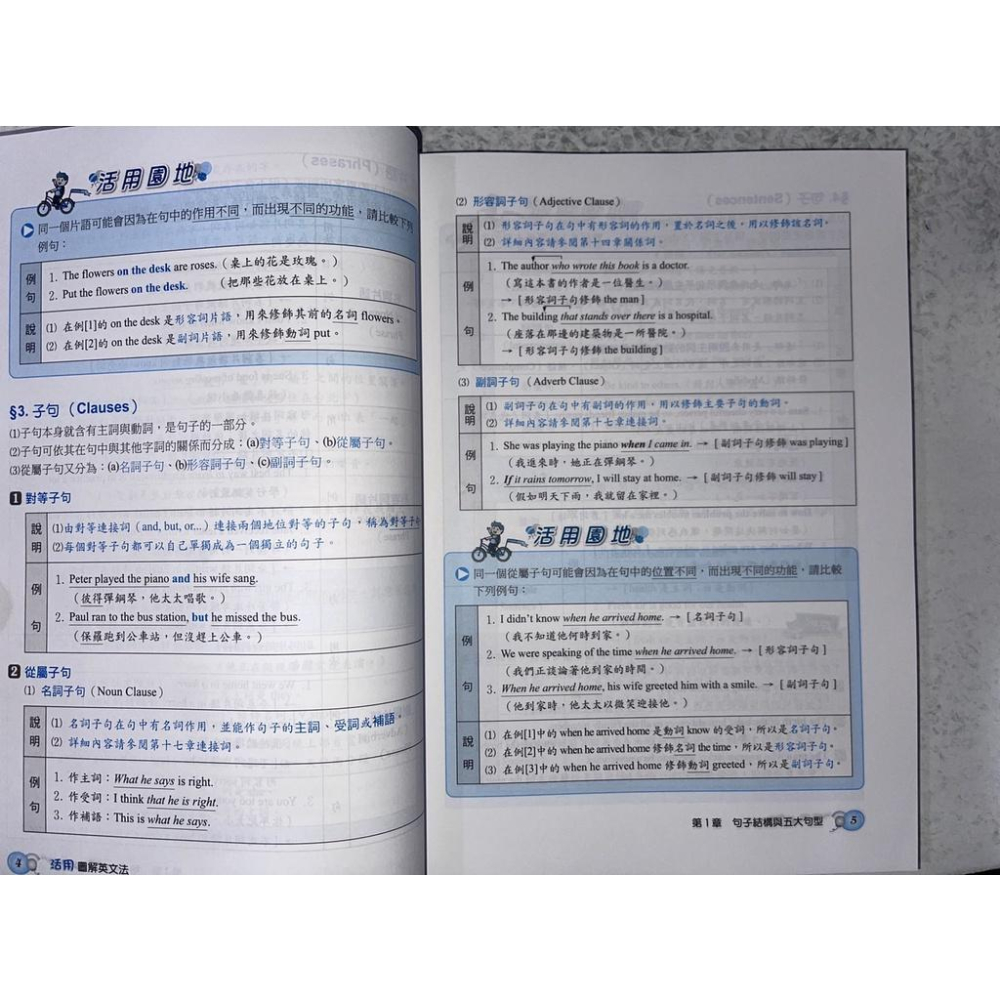 活用園地
同一個片語可能會因為在句中的作用不同，而出現不同的功能，請比較下列
例句：
例句
1. The flowers on the desk are roses.（桌上的花是玫瑰。）
2. Put the flowers on the desk.（把那些花放在桌上。）
說明
(1) 在例[1]的 on the desk 是形容詞片語，用來修飾其前的名詞 flowers。
(2) 在例[2]的 on the desk 是副詞片語，用來修飾動詞 put。
§3. 子句（Clauses）
(1)子句本身就含有主詞與動詞，是句子的一部分。
(2)子句可依其在句中與其他字詞的關係而分成：(a)對等子句、(b)從屬子句。
(3)從屬子句又分為：(a)名詞子句、(b)形容詞子句、(c)副詞子句。
1 對等子句
說明
(1)由對等連接詞（and, but, or...）連接兩個地位對等的子句，稱為對等子句
(2)每個對等子句都可以自己單獨成為一個獨立的句子。
例句
1. Peter played the piano and his wife sang.
（彼得彈鋼琴，他太太唱歌。）
2. Paul ran to the bus station, but he missed the bus.
（保羅跑到公車站，但沒趕上公車。）
2 從屬子句
(1) 名詞子句（Noun Clause）
說明
(1) 名詞子句在句中有名詞作用，並能作句子的主詞、受詞或補語。
(2) 詳細內容請參閱第十七章連接詞。
例句
1. 作主詞：What he says is right.
2. 作受詞：I think that he is right.
3. 作補語：This is what he says.
4 活用圖解英文法
(2) 形容詞子句（Adjective Clause）
說明
(1) 形容詞子句在句中有形容詞的作用，置於名詞之後，用以修飾該名詞。
(2) 詳細內容請參閱第十四章關係詞。
例句
1. The author who wrote this book is a doctor.
（寫這本書的作者是一位醫生。）
→ [形容詞子句修飾 the man]
2. The building that stands over there is a hospital.
（座落在那邊的建築物是一所醫院。）
→ [形容詞子句修飾 the building]
(3) 副詞子句（Adverb Clause）
說明
(1) 副詞子句在句中有副詞的作用，用以修飾主要子句的動詞。
(2) 詳細內容請參閱第十七章連接詞。
例句
1. She was playing the piano when I came in. → [副詞子句修飾 was playing]
（我進來時，她正在彈鋼琴。）
2. If it rains tomorrow, I will stay at home. → [副詞子句修飾 will stay]
（假如明天下雨，我就留在家裡。）
活用園地
同一個從屬子句可能會因為在句中的位置不同，而出現不同的功能，請比較
下列例句：
例句
1. I didn't know when he arrived home. → [名詞子句]
（我不知道他何時到家。）
2. We were speaking of the time when he arrived home. → [形容詞子句]
（我們正談論著他到家的時間。）
3. When he arrived home, his wife greeted him with a smile. → [副詞子句]
（他到家時，他太太以微笑迎接他。）
說明
(1) 在例[1]中的 when he arrived home 是動詞 know 的受詞，所以是名詞子句。
(2) 在例[2]中的 when he arrived home 修飾名詞 the time，所以是形容詞子句。
(3) 在例[3]中的 when he arrived home 修飾動詞 greeted，所以是副詞子句。
第1章 句子結構與五大句型 5